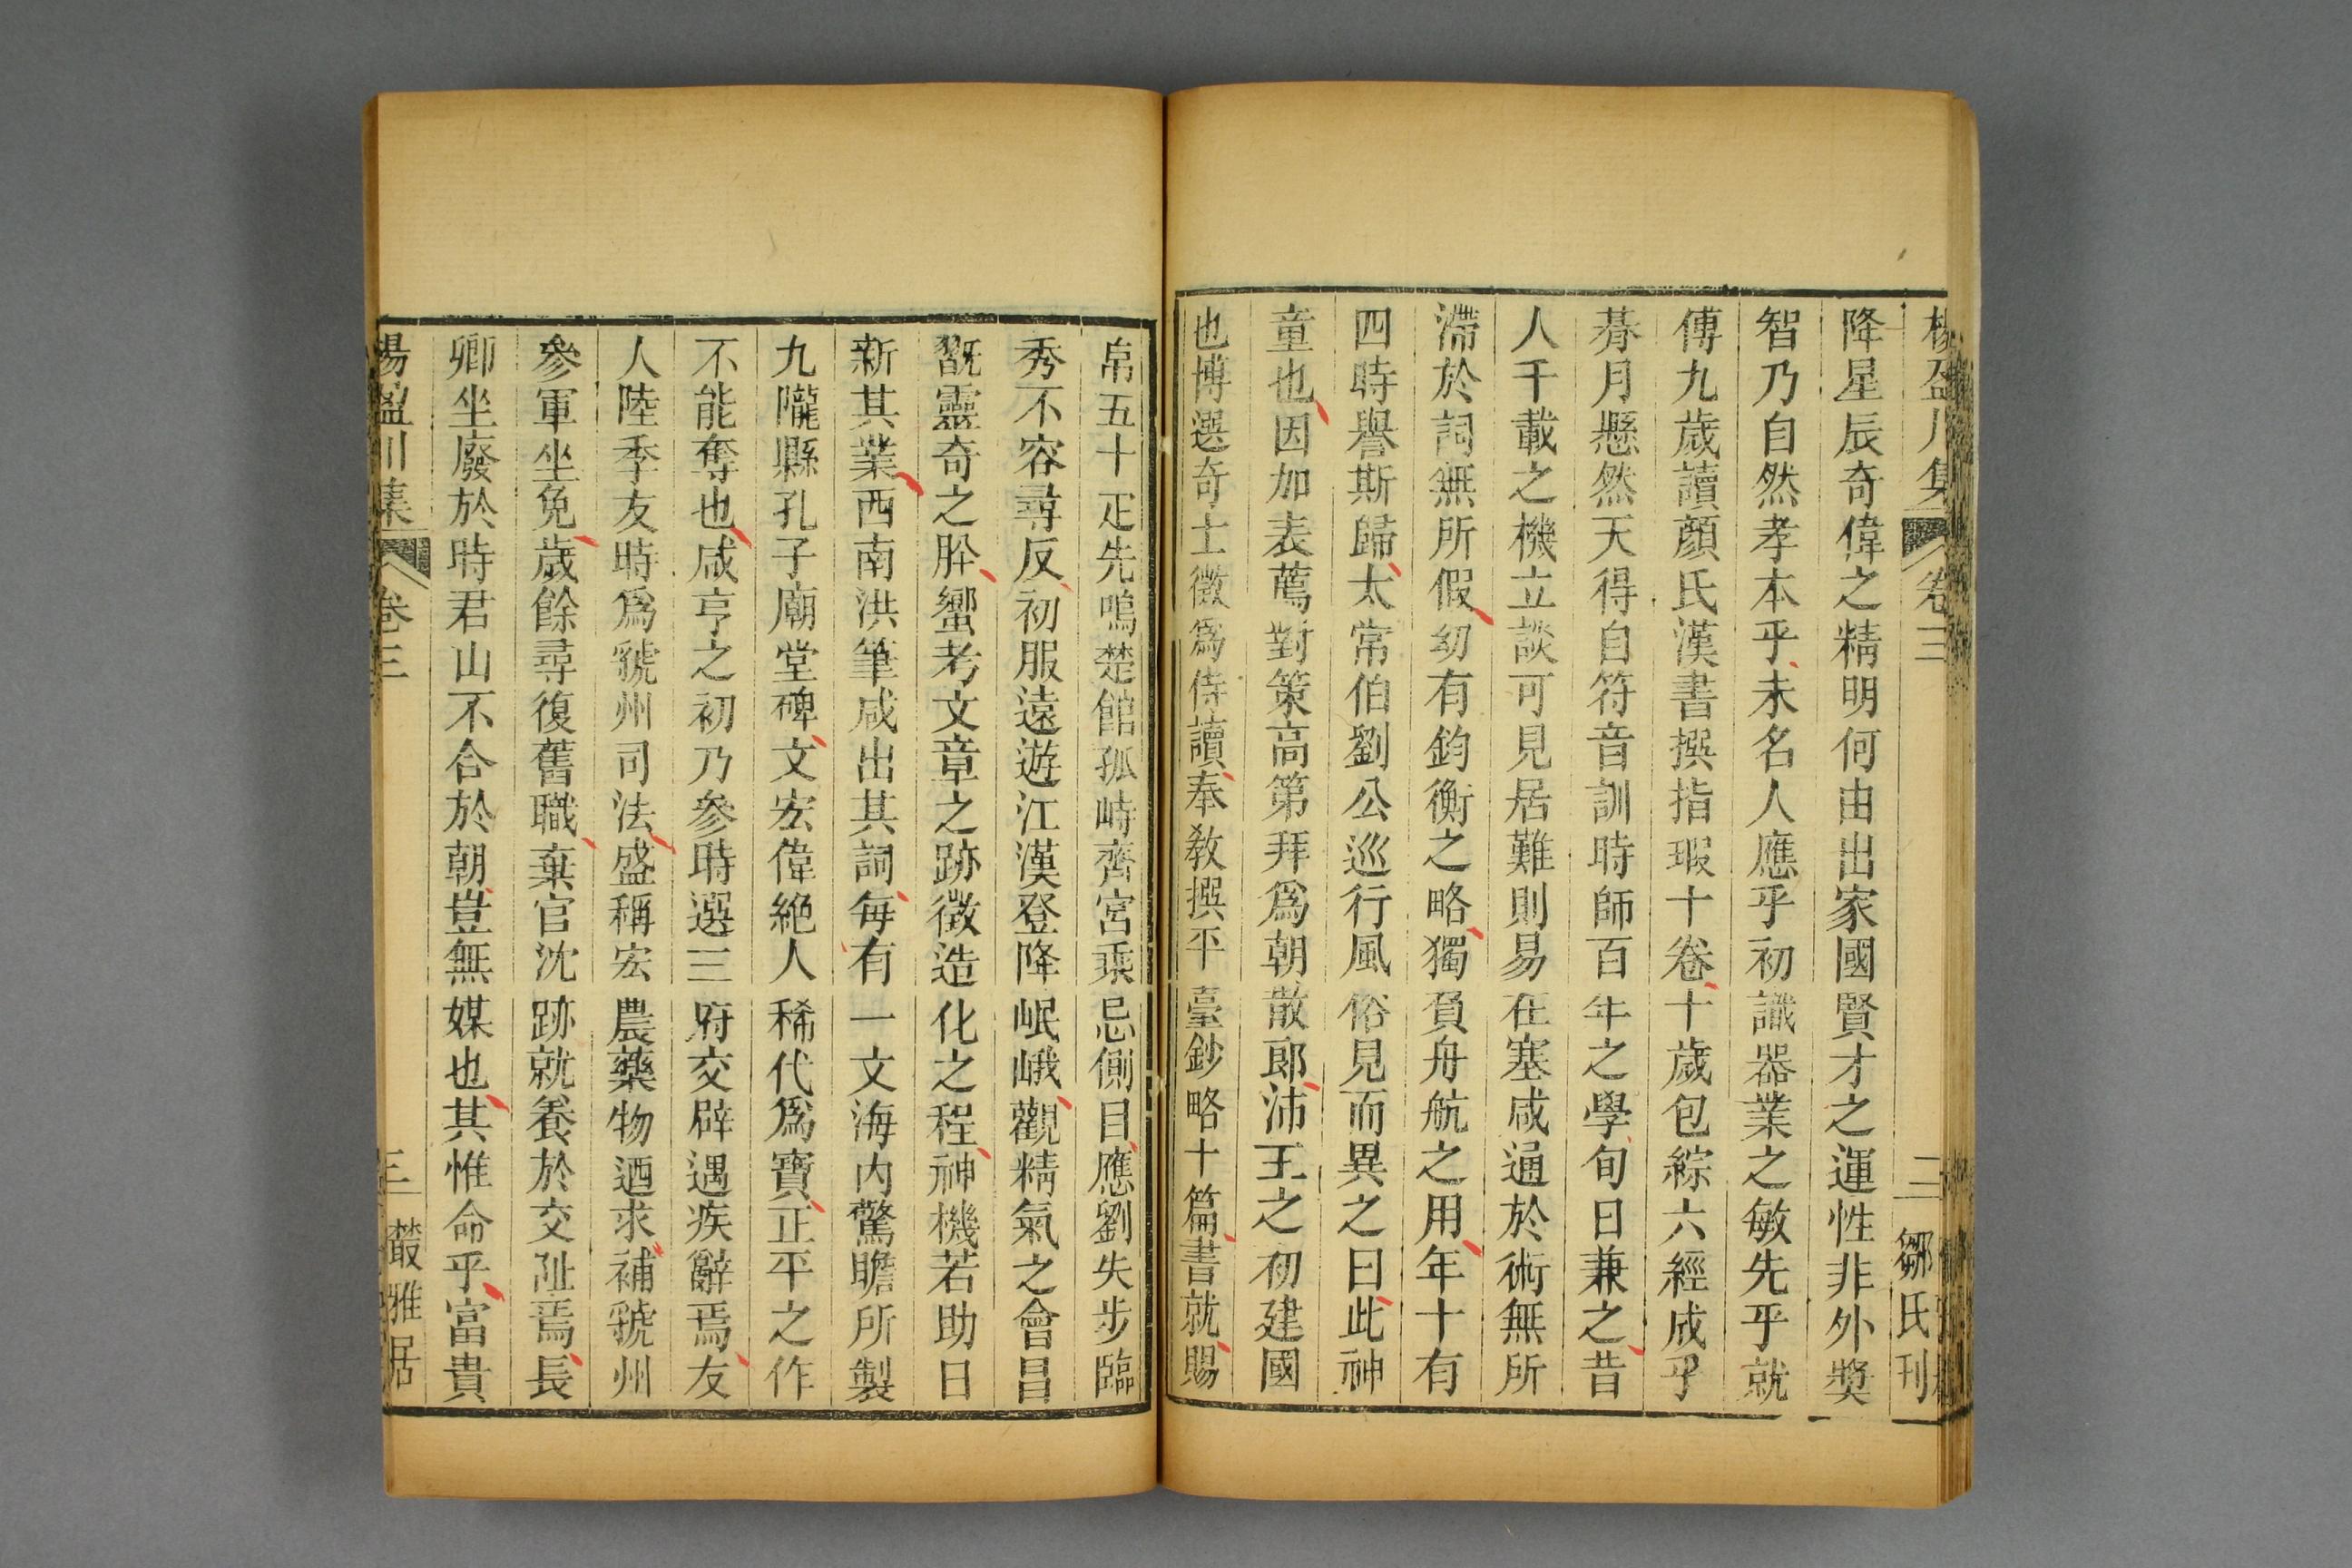 楊盈川集 卷三 二 鄒氏刊
降星辰奇偉之精明何由出家國賢才之運性非外奬
智乃自然孝本乎未名人應乎初識器業之敏先乎就
傅九歲讀顏氏漢書撰指瑕十卷十歲包綜六經成乎
朞月懸然天得自符音訓時師百年之學旬日兼之昔
人千載之機立談可見居難則易在塞咸通於術無所
滯於詞無所假幼有鈞衡之略獨負舟航之用年十有
四時譽斯歸太常伯劉公巡行風俗見而異之曰此神
童也因加表薦對策高第拜爲朝散郎沛王之初建國
也博選奇士徵爲侍讀奉敎撰平臺鈔略十篇書就賜
帛五十疋先鳴楚館孤峙齊宮乘忌側目應劉失步臨
秀不容尋反初服遠遊江漢登降岷峨觀精氣之會昌
翫靈奇之肸蠁考文章之跡徵造化之程神機若助日
新其業西南洪筆咸出其詞每有一文海內驚瞻所製
九隴縣孔子廟堂碑文宏偉絕人稀代爲寶正平之作
不能奪也咸亨之初乃參時選三府交辟遇疾辭焉友
人陸季友時爲虢州司法盛稱宏農藥物迺求補虢州
參軍坐免歲餘尋復舊職棄官沈跡就養於交阯焉長
卿坐廢於時君山不合於朝豈無媒也其惟命乎富貴
楊盈川集 卷三 三 叢雅居